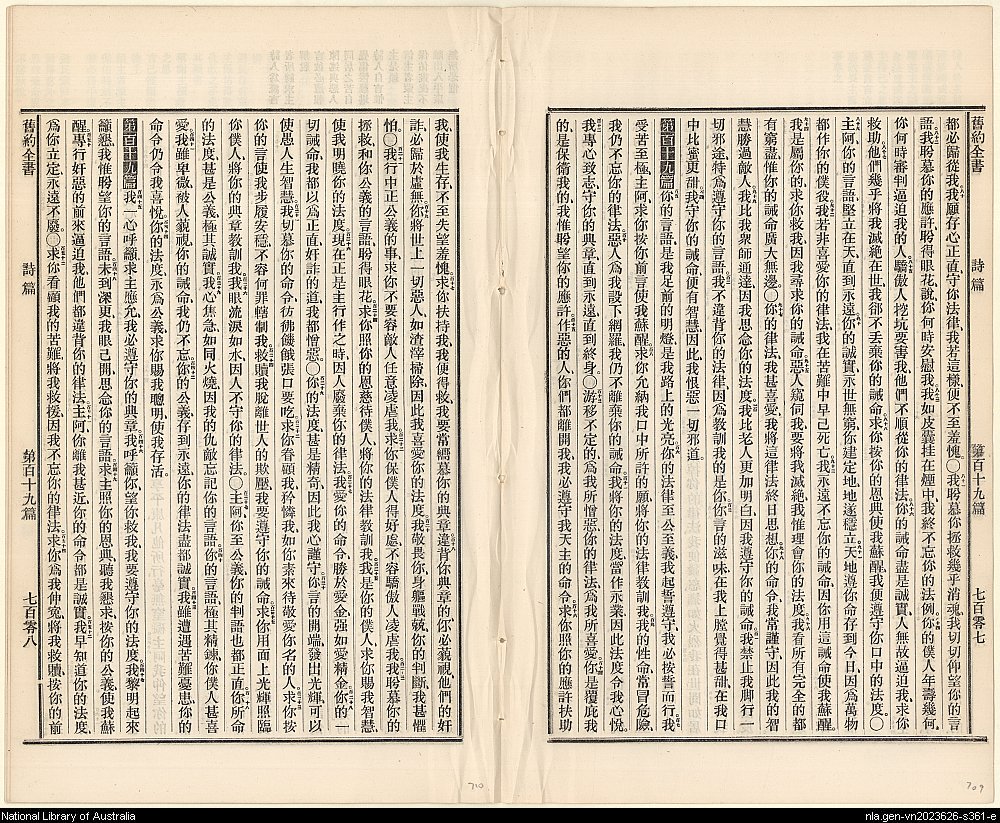 舊約全書 詩篇 第百十九篇 七百零七
都必歸從我我願存心正直守你法律我若這樣便不至羞愧〇我盼慕你拯救幾乎消魂我切切仰望你的言
語我盼慕你的應許盼得眼花說你何時安慰我我如皮囊挂在煙中我終不忘你的法例你的僕人年壽幾何
你何時審判逼迫我的人驕傲人挖坑要害我他們不順從你的律法你的誡命盡是誠實人無故逼迫我求你
救助他們幾乎將我滅絕在世我卻不丟棄你的誡命求你按你的恩典使我蘇醒我便遵守你口中的法度〇
主阿你的言語堅立在天直到永遠你的誠實永世無窮你建定地地遂穩立天地遵你命存到今日因為萬物
都作你的僕役我若非喜愛你的律法我在苦難中早已死亡我永遠不忘你的誡命因你用這誡命使我蘇醒
我是屬你的求你救我因我尋求你的誡命惡人窺伺我要將我滅絕我惟理會你的法度我看所有完全的都
有窮盡惟你的誡命廣大無邊〇你的律法我甚喜愛我將這律法終日思想你的命令我常謹守因此我的智
慧勝過敵人我比我衆師通達因我思念你的法度我比老人更加明白因我遵守你的誡命我禁止我脚行一
切邪途特為遵守你的言語我不違背你的法律因為教訓我的是你你言的滋味在我上膛覺得甚甜在我口
中比蜜更甜我守你的誡命便有智慧因此我恨惡一切邪道
第百十九篇 你的言語是我足前的明燈是我路上的光亮你的法律至公至義我起誓遵守我必按誓而行我
受苦至極主阿求你按你前言使我蘇醒求你允納我口中所許的願將你的法律教訓我我的性命常冒危險
我仍不忘你的律法惡人為我設下網羅我仍不離棄你的誡命我將你的法度當作永業因此法度令我心悅
我專心致志守你的典章直到永遠直到終身〇游移不定的為我所憎惡你的律法為我所喜愛你是覆庇我
的是保衛我的我惟盼望你的應許作惡的人你們都離開我我必遵守我天主的命令求你照你的應許扶助
我使我生存不至失望羞愧求你扶持我我便得救我要當繼慕你的典章違背你典章的你必藐視他們的奸
詐必歸於虛無你將世上一切惡人如渣滓掃除因此我喜愛你的法度我敬畏你身軀戰兢你的判斷我甚懼
怕〇我行中正公義的事求你不要容敵人任意凌虐我求你保僕人得好處不容驕傲人凌虐我我盼慕你的
拯救和你公義的言語盼得眼花求你照你的恩慈待僕人將你的法律教訓我我是你的僕人求你賜我智慧
使我明曉你的法度現在正是主行作之時因人廢棄你的律法我愛你的命令勝於愛金強如愛精金你的一
切誡命我都以為正直奸詐的道我都憎惡〇你的法度甚是精奇因此我心謹守你言的開端發出光輝可以
使愚人生智慧我切慕你的命令彷彿饑餓張口要吃求你眷顧我矜憐我如你素來待敬愛你名的人求你按
你的言使我步履安穩不容何罪轄制我救贖我脫離世人的欺壓我要遵守你的誡命求你用面上光輝照臨
你僕人將你的典章教訓我我眼流淚如水因人不守你的律法〇主阿你至公義你的判語也都正直你所命
的法度甚是公義極其誠實我心焦急如同火燒因我的仇敵忘記你的言語你的言語極其精鍊你僕人甚喜
愛我雖卑微被人藐視你的誡命我仍不忘你的公義存到永遠你的律法盡都誠實我雖遭遇苦難憂患你的
命令仍令我喜悅你的法度永為公義求你賜我聰明使我存活
第百十九篇 我一心呼籲求主應允我必遵守你的典章我呼籲你望你救我我要遵守你的法度我黎明起來
籲懇我惟盼望你的言語未到深更我眼已開思念你的言語求主照你的恩典聽我懇求按你的公義使我蘇
醒專行奸惡的前來逼迫我他們都違背你的律法主阿你離我甚近你的命令都是誠實我早知道你的法度
為你立定永遠不廢〇求你看顧我的苦難將我救援因我不忘你的律法求你為我伸寃將我救贖按你的前
舊約全書 詩篇 第百十九篇 七百零八
710
709
National Library of Australia
nla.gen-vn2023626-s361-e